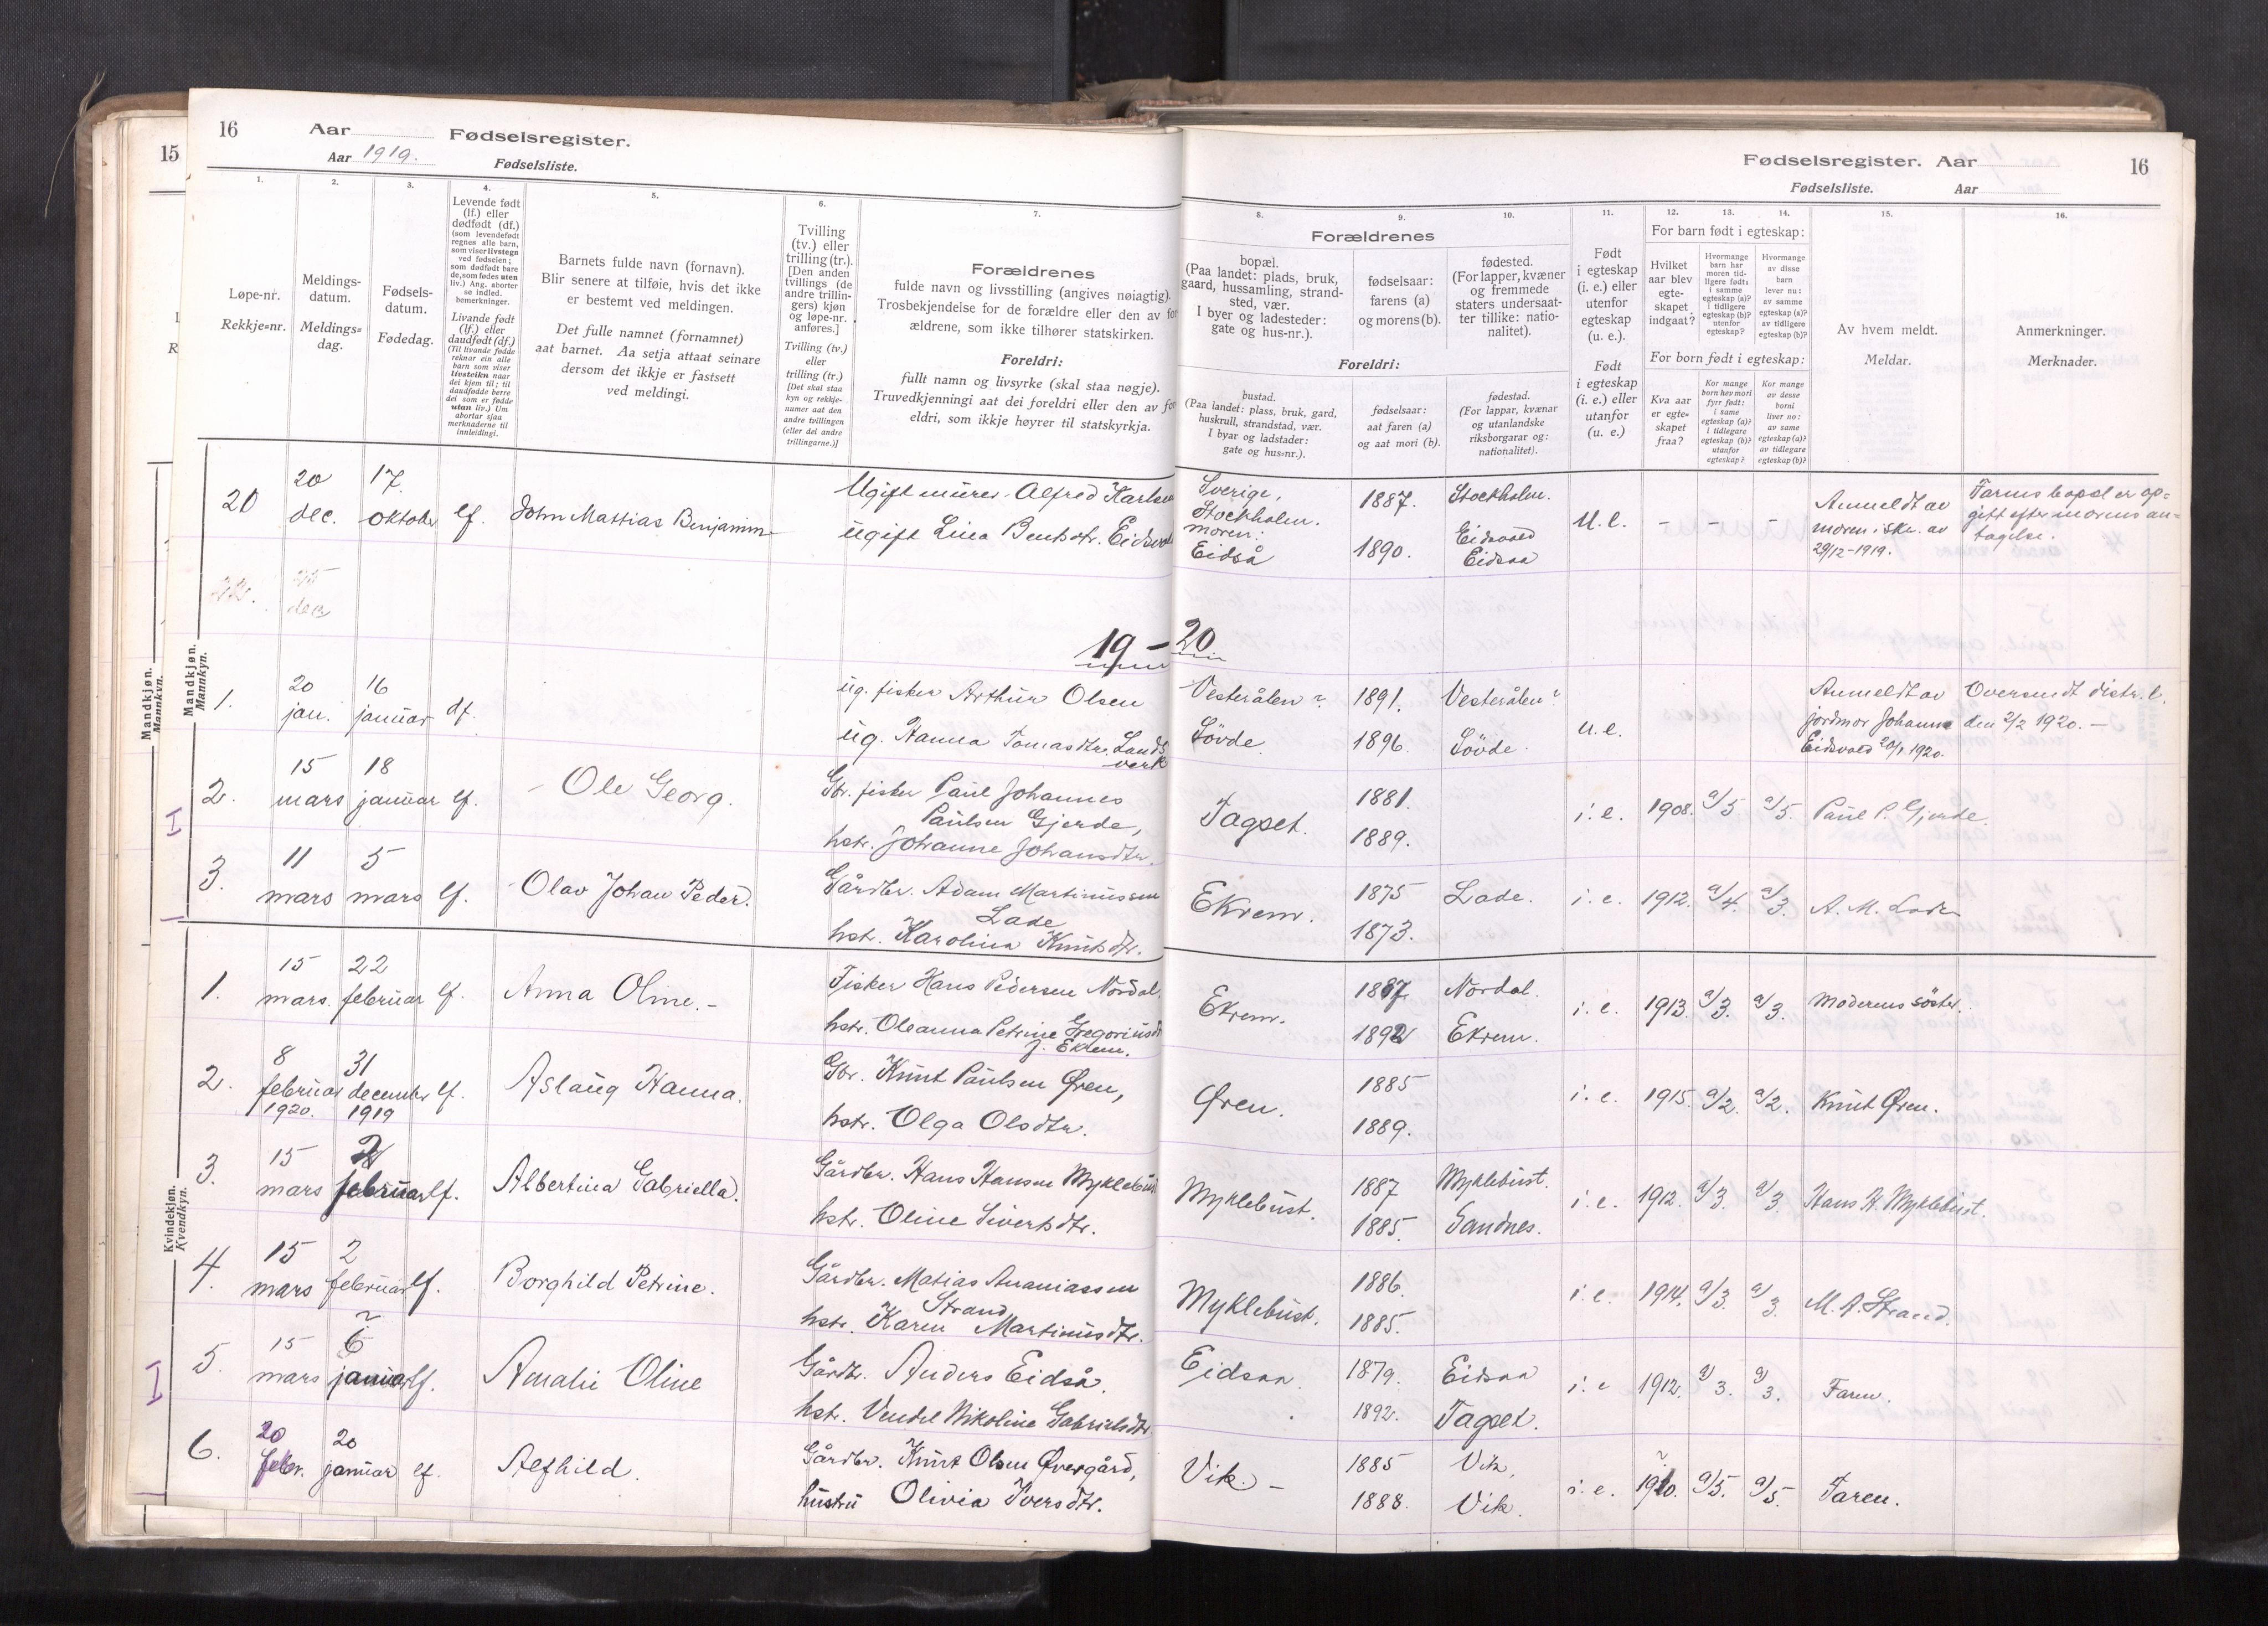 15
16
Aar
Fødselsregister.
Aar 1919.
Fødselsliste.
1.
2.
3.
4.
5.
6.
7.
Løpe-nr.
Rekkje=nr.
Meldings-
datum.
Meldings=
dag.
Fødsels-
datum.
Fødedag.
Levende født
(lf.) eller
dødfødt (df.)
(som levendefødt
regnes alle barn,
som viser livstegn
ved fødselen;
som dødfødt bare
de, som fødes uten
liv.) Ang. aborter
se indled.
bemerkninger.
Livande født
(lf.) eller
daudfødt (df.)
(Til livande fødde
reknar ein alle
barn som viser
livsteikn naar
dei kjem til; til
daudfødde berre
dei som er fødde
utan liv.) Um
abortar sjaa
merknaderne til
innleidingi.
Barnets fulde navn (fornavn).
Blir senere at tilføie, hvis det ikke
er bestemt ved meldingen.
Det fulle namnet (fornamnet)
aat barnet. Aa setja attaat seinare
dersom det ikkje er fastsett
ved meldingi.
Tvilling
(tv.) eller
trilling (tr.).
[Den anden
tvillings (de
andre trillin-
gers) kjøn
og løpe-nr.
anføres.]
Tvilling (tv.)
eller
trilling (tr.)
[Det skal staa
kyn og rekkje-
numer aat den
andre tvillingen
(eller dei andre
trillingarne.)]
Forældrenes
fulde navn og livsstilling (angives nøiagtig).
Trosbekjendelse for de forældre eller den av for
ældrene, som ikke tilhører statskirken.
Foreldri:
fullt namn og livsyrke (skal staa nøgje).
Truvedkjenningi aat dei foreldri eller den av for
eldri, som ikkje høyrer til statskyrkja.
Mandkjøn.
Mannkyn.
Mandkjøn.
Mannkyn.
20
20
dec.
17.
oktober
lf.
John Mattias Benjamin
Ugift murer Alfred Karlsen
ugift Lina Bentsdtr. Eidsvold
25
dec
19 – 20
1.
20
jan.
16
januar
df.
ug. fisker Arthur Olsen
ug. Hanna Tomasdtr. Lands
verk
2.
15
mars
18
januar
lf.
Ole Georg.
Gbr. fisker Paul Johannes
Paulsen Gjerde,
hstr. Johanne Johansdtr.
3.
11
mars
5
mars
lf.
Olav Johan Peder.
Gårdbr. Adam Martinussen
Lade
hstr. Karolina Knutsdtr.
Kvindekjøn.
Kvendkyn.
1.
15
mars.
22
februar
lf.
Anna Oline.-
Fisker Hans Pedersen Nordal.
hstr. Oleanna Petrine Gregoriusdt
f. Ekrem.
2.
8
februar
1920.
31
december
1919
lf.
Aslaug Hanna.
Gbr. Knut Paulsen Øren,
hstr. Olga Olsdtr.
3.
15
mars
februar
lf.
Albertina Gabriella.
Gårdbr. Hans Hansen Myklebust
hstr. Oline Sivertsdtr.
4.
15
mars
2
februar
lf.
Borghild Petrine.
Gårdbr. Matias Ananiassen
Strand
hstr. Karen Martinusdtr.
5.
15
mars
6
januar
lf.
Amalie Oline
Gårdbr. Anders Eidså.
hstr. Vendel Nikoline Gabrielsdtr.
6.
20
febr.
20
januar
lf.
Alfhild.
Gårdbr. Knut Olsen Øvregård,
hustru Olivia Iversdtr.
Fødselsregister. Aar
16
Fødselsliste.
Aar
8.
9.
10.
11.
12.
13.
14.
15.
16.
Forældrenes
bopæl.
(Paa landet: plads, bruk,
gaard, hussamling, strand-
sted, vær.
I byer og ladesteder:
gate og hus-nr.).
fødselsaar:
farens (a)
og morens (b).
fødested.
(For lapper, kvæner
og fremmede
staters undersaat-
ter tillike: natio-
nalitet).
Foreldri:
bustad.
(Paa landet: plass, bruk, gard,
huskrull, strandstad, vær.
I byar og ladstader:
gate og hus=nr.).
fødselsaar:
aat faren (a)
og aat mori (b).
fødestad.
(For lappar, kvænar
og utanlandske
riksborgarar og:
nationalitet).
Født
i egteskap
(i. e.) eller
utenfor
egteskap
(u. e.).
Født
i egteskap
(i. e.) eller
utanfor
(u. e.)
For barn født i egteskap:
Hvilket
aar blev
egte-
skapet
indgaat?
Hvormange
barn har
moren tid-
ligere født:
i samme
egteskap (a)?
i tidligere
egteskap (b)?
utenfor
egteskap?
Hvormange
av disse
barn
lever nu:
av samme
egteskap (a)?
av tidligere
egteskap (b)?
For born født i egteskap:
Kva aar
er egte=
skapet
fraa?
Kor mange
born hev mori
fyrr født:
i same
egteskap (a)?
i tidlegare
egteskap (b)?
utanfor
egteskap?
Kor mange
av desse
borni
liver no:
av same
egteskap (a)?
av tidlegare
egteskap (b)?
Av hvem meldt.
Meldar.
Anmerkninger.
Merknader.
Sverige,
Stockholm.
moren:
Eidså
1887.
1890.
Stockholm.
Eidsvold
Eidsaa
U. e.
-
-
-
Anmeldt av
moren i skr. av
29/12-1919.
Farens bopæl er op=
gitt efter morens an=
tagelse.
Vesterålen?
Søvde.
1891.
1896.
Vesterålen?
Søvde.
u. e.
Anmeldt av
jordmor Johanne
Eidsvold 20/1 1920.
Oversendt distr. l.
den 2/2 1920. –
Tagset.
1881.
1889.
i. e.
1908.
a/5
a/5.
Paul P. Gjerde.
Ekrem.
1875
1873.
Lade.
i. e.
1912.
a/4.
a/3.
A. M. Lade
Ekrem.
1887.
1892
Nordal.
Ekrem.
i. e.
1913.
a/3.
a/3.
Moderens søster.
Øren.
1885
1889.
i. e.
1915.
a/2.
a/2.
Knut Øren.
Myklebust.
1887
1885.
Myklebust.
Sandnes.
i. e.
1912.
a/3.
a/3.
Hans H. Myklebust.
Myklebust.
1886.
1885.
i. e.
1914.
a/3.
a/3.
M. A. Strand.
Eidsaa.
1879.
1892.
Eidsaa
Tagset.
i. e
1912.
a/3.
a/3.
Faren.
Vik. –
1885
1888.
Vik,
Vik.
i. e.
1910.
a/5.
a/5.
Faren.